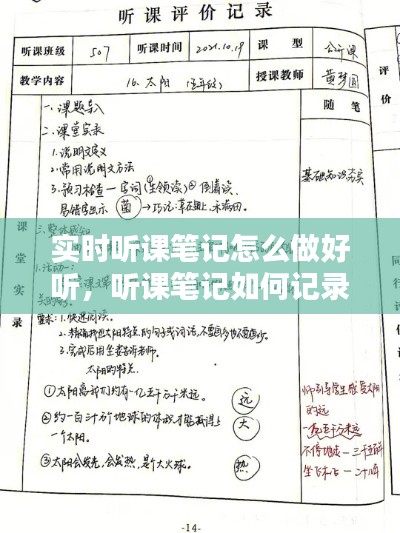 听课评价记录
听课班级 507 听课时间 2021.10.19 课型 公开课
教学内容 16.太阳(五年级) 授课教师
课堂实录
随笔
评价
一、课题导入
二、课堂实录
1.说明文定义
2.常用说明文方法
3.预习检查
易错字出示 菌
基础知识夯实
实时听课笔记怎么做好
听，听课笔记如何记录
要求：1.快速阅读。
3.完成后用坐姿告诉老师。
太阳的特点
①太阳离我们约有一亿五千万千米远。 远
②约一百三十万个地球的体积才能抵得上
一个太阳。 大
③太阳会发光，会发热，是个大火球。 热
师引导学生感受太阳
的远
一亿五千万千米远
-14-